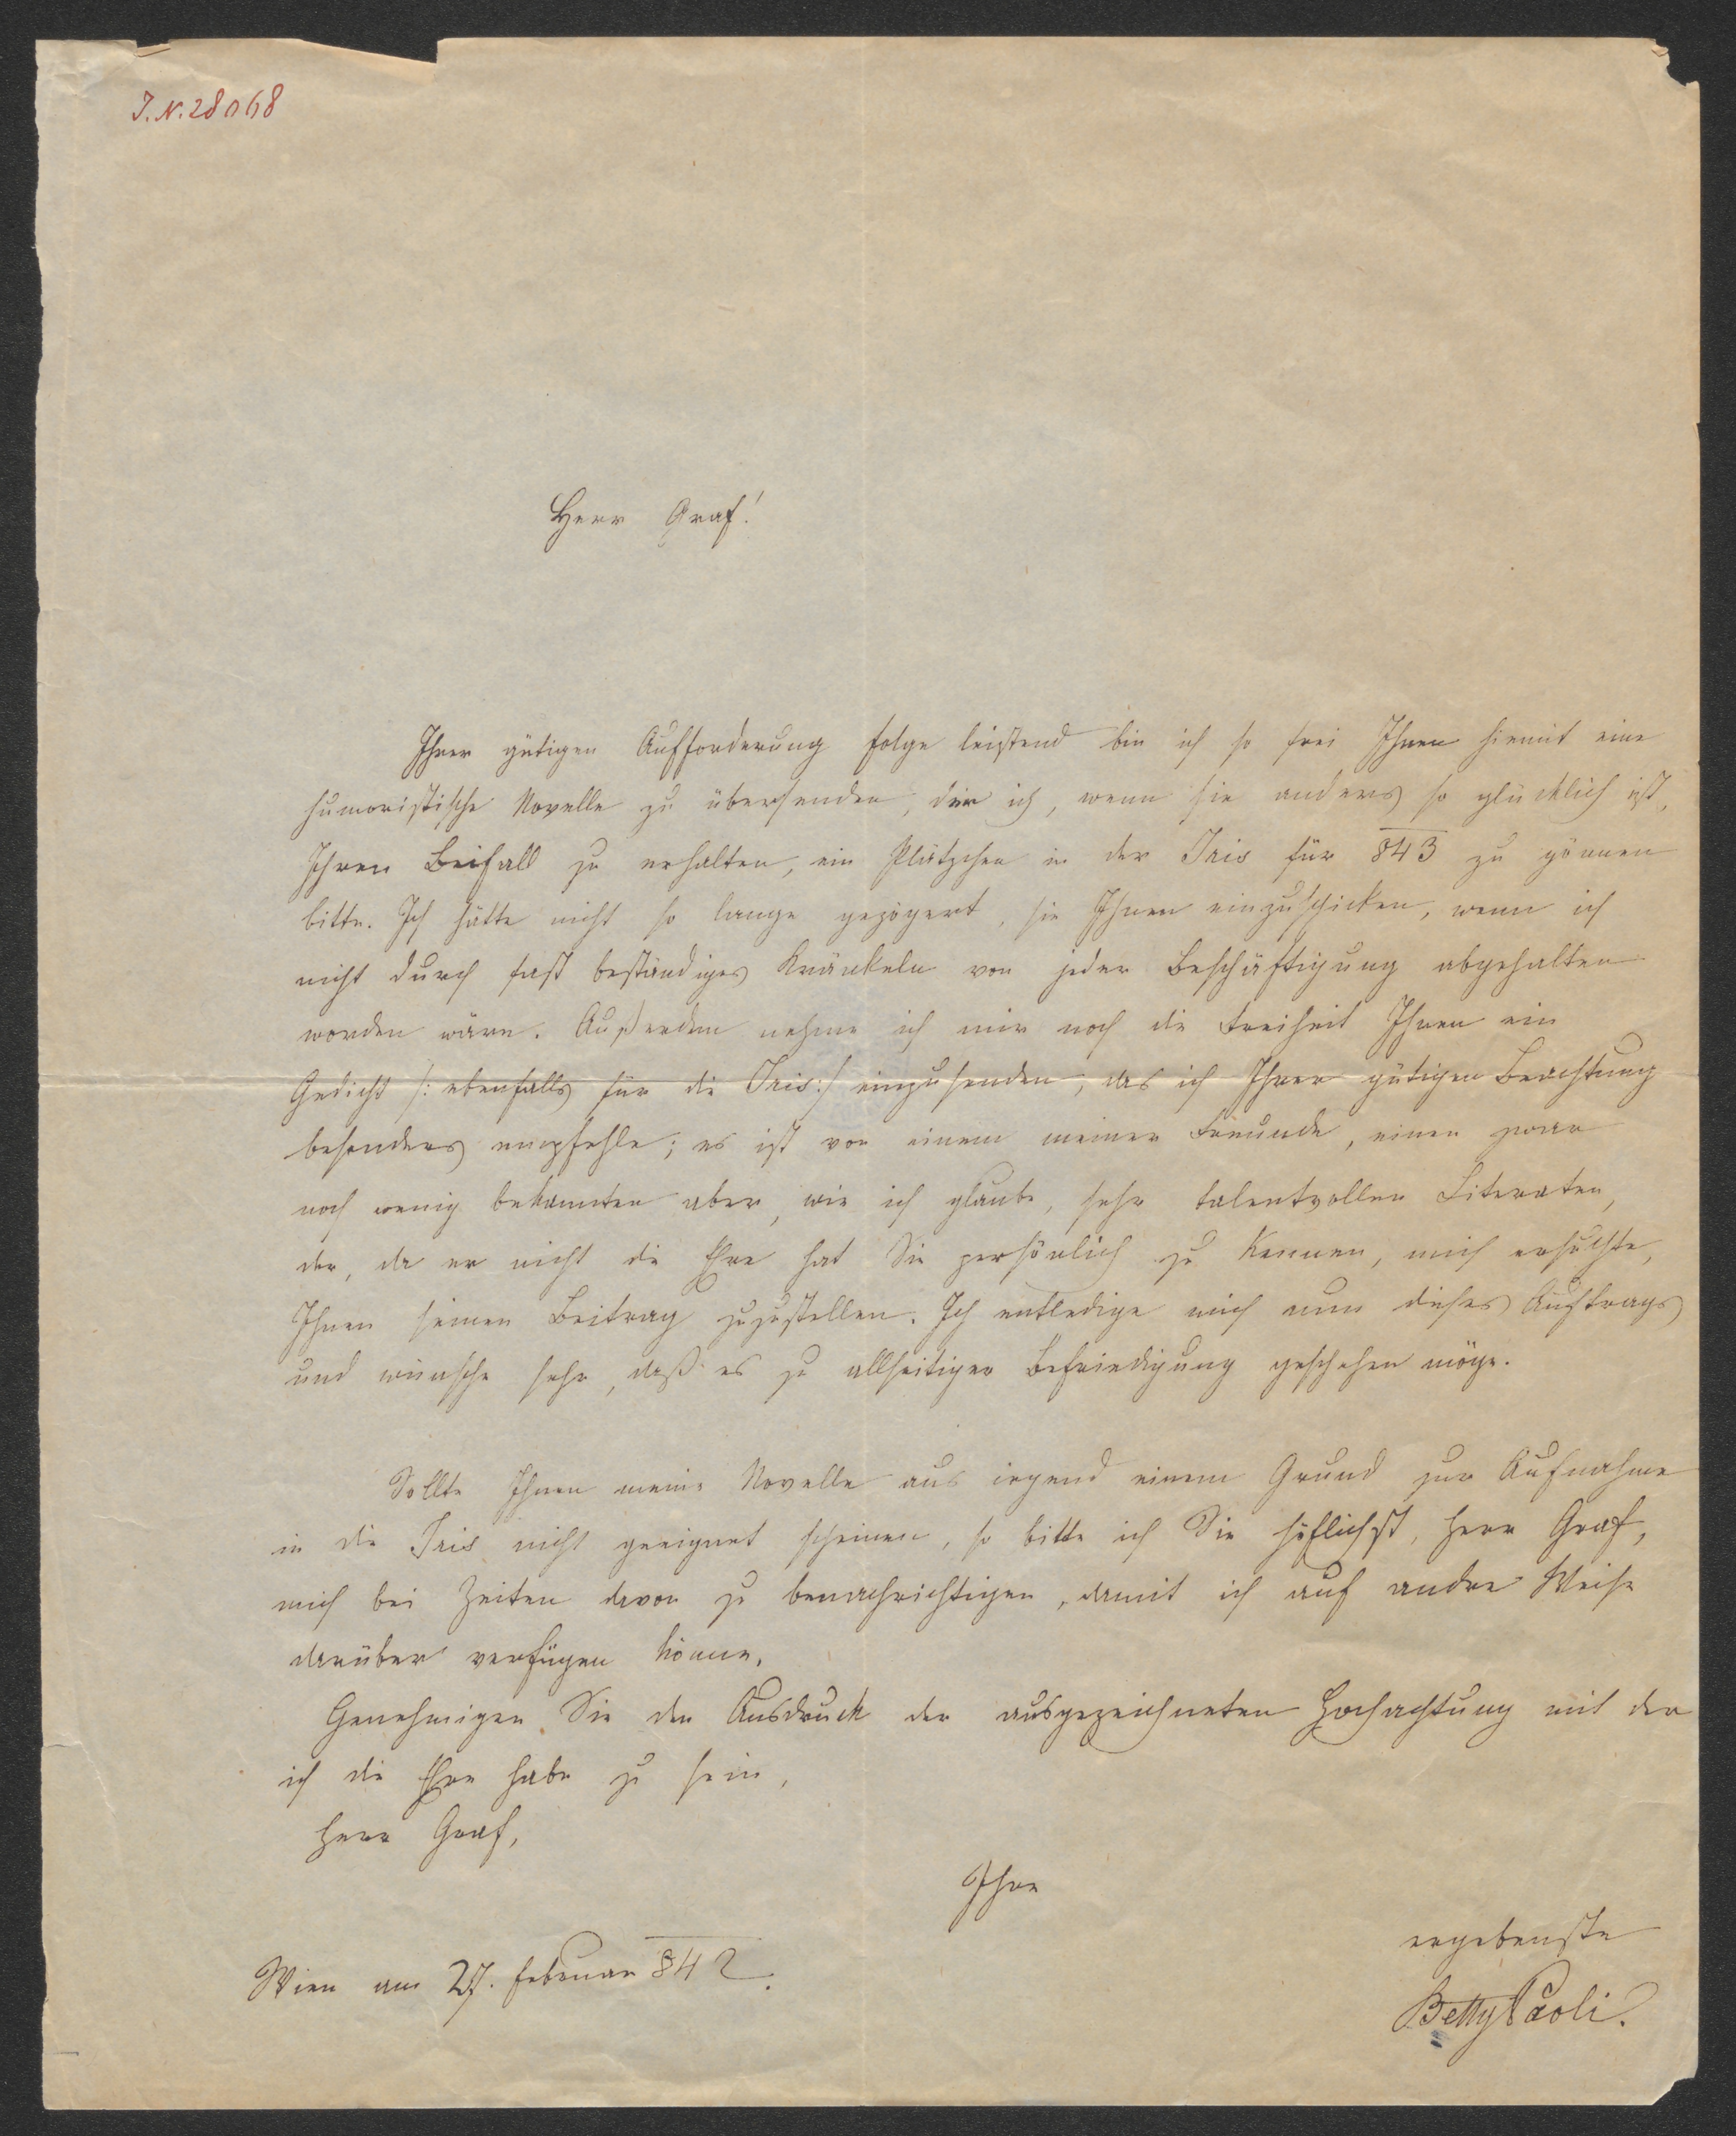 J.N. 28068
Herr Graf!
Ihrer gütigen Aufforderung Folge leistend bin ich so frei Ihnen hiemit eine
humoristische Novelle zu übersenden, der ich, wenn sie anders so glücklich ist,
Ihren Beifall zu erhalten, ein Plätzchen in der Iris für 843 zu gönnen
bitte. Ich hätte nicht so lange gezögert, sie Ihnen einzuschicken, wenn ich
nicht durch fast beständiges Kränkeln von jeder Beschäftigung abgehalten
worden wäre. Außerdem nehme ich mir noch die Freiheit Ihnen ein
Gedicht /: ebenfalls für die Iris :/ einzusenden, das ich Ihrer gütigen Beachtung
besonders empfehle; es ist von einem meiner Freunde, einen zwar
noch wenig bekannten aber, wie ich glaube, sehr talentvollen Literaten,
der, da er nicht die Ehre hat Sie persönlich zu kennen, mich ersuchte,
Ihnen seinen Beitrag zuzustellen. Ich entledige mich nun dieses Auftrags
und wünsche sehr, daß es zu allseitiger Befriedigung geschehen möge.
Sollte Ihnen meine Novelle aus irgend einem Grund zur Aufnahme
in die Iris nicht geeignet scheinen, so bitte ich Sie höflichst, Herr Graf,
mich bei Zeiten davon zu benachrichtigen, damit ich auf andre Weise
darüber verfügen könne.
Genehmigen Sie den Ausdruck der ausgezeichneten Hochachtung mit der
ich die Ehre habe zu sein,
Herr Graf,
Ihre
ergebenste
Wien am 27. Februar 842.
Betty Paoli.